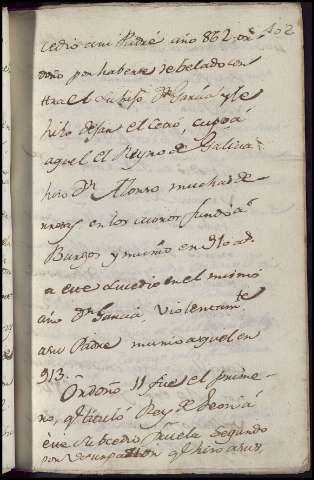 402
cedio a su Padre año 862. or
doño por haberse rebelado con
tra el su hijo Dn Garcia y le
hizo dejar el Cetro, cupo a
aquel el Reyno de Galicia
hizo Dn Alonso muchas de
en los moros fundó a
Burgos y murio en 910 ad.
a este sucedio en el mismo
año Dn Garcia, violentamte
a su Padre murio aquel en
913.
Ordoño 11 fue el prime
ro, q titulo Rey de Leon á
este subcedio Fruela Segundo
por q hizo a sus